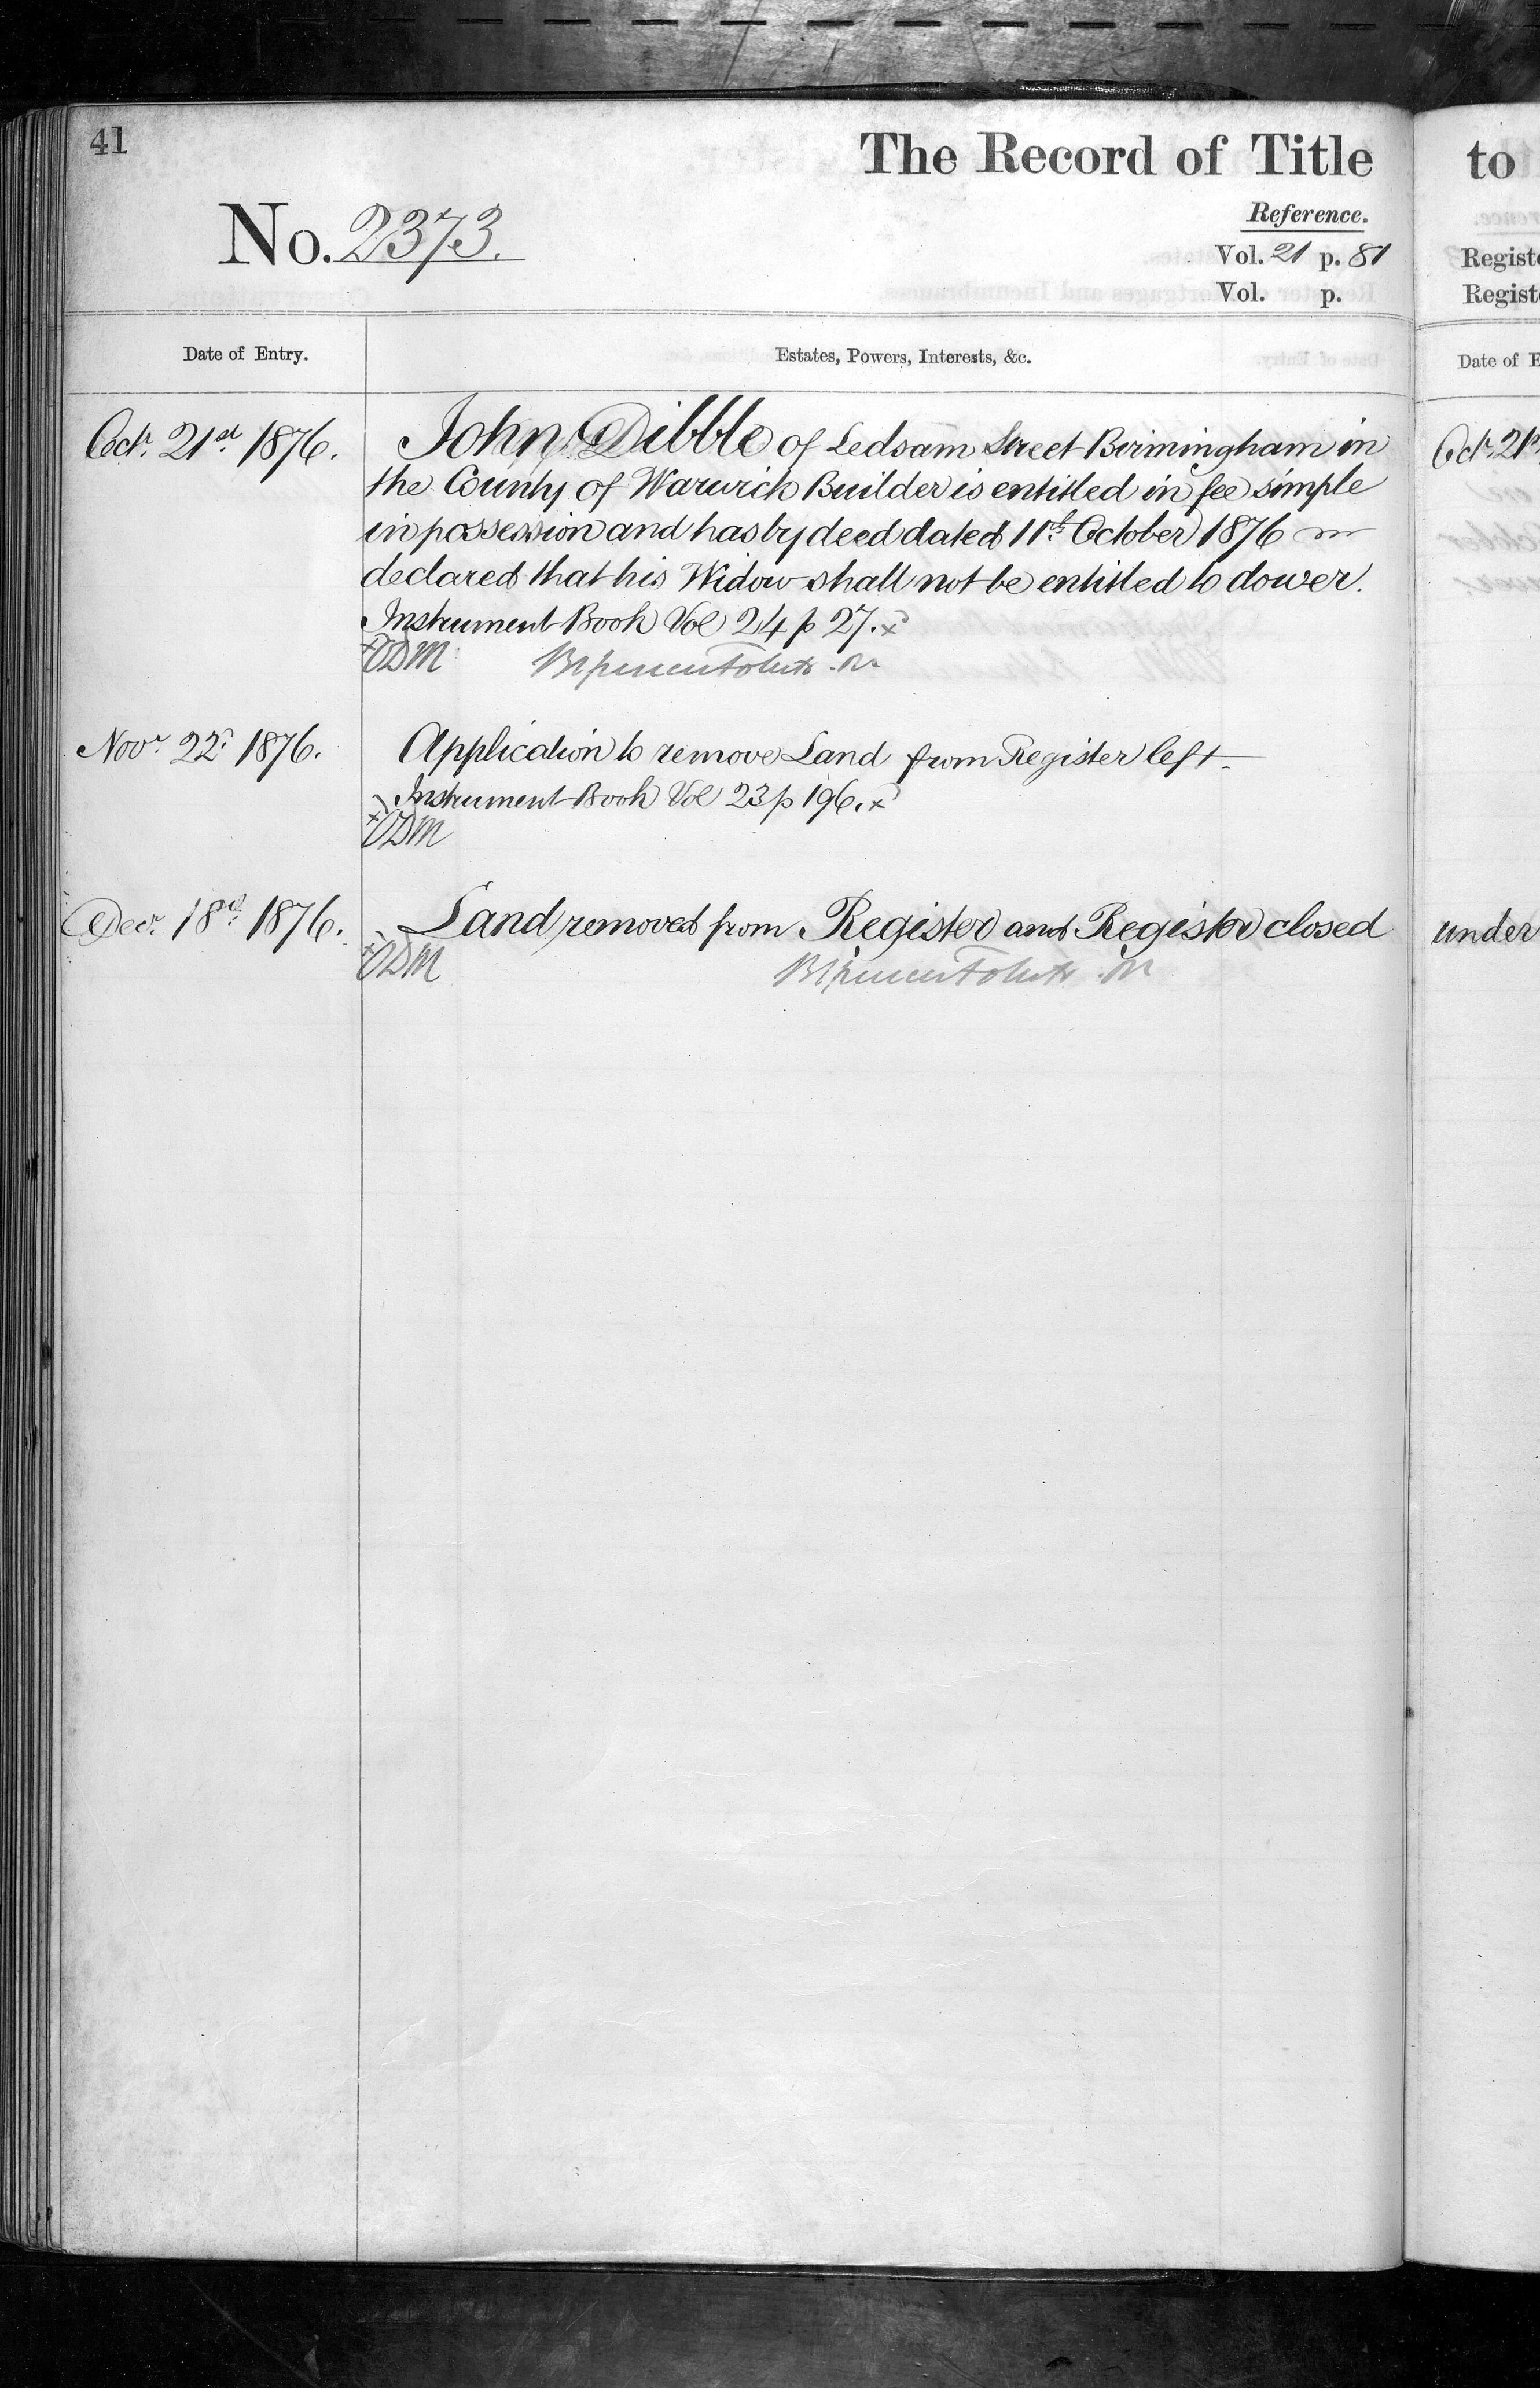 41
The Record of Title
No. 2373.
Reference.
Vol. 21 p. 81
Vol. p.
Date of Entry.
Estates, Powers, Interests, &c.
Octr. 21st 1876.
John Dibble of Ledsam Street Birmingham in
the County of Warwick Builder is entitled in fee simple
in possession and has by deed dated 11th October 1876
declared that his Widow shall not be entitled to dower.
Instrument Book Vol 24 p 27. x
Novr. 22d. 1876.
Application to remove Land from Register left.
Instrument Book Vol 23 p 196. x
Decr. 18th. 1876.
Land removed from Register and Register closed
to
Date of E
Octr. 21st
under